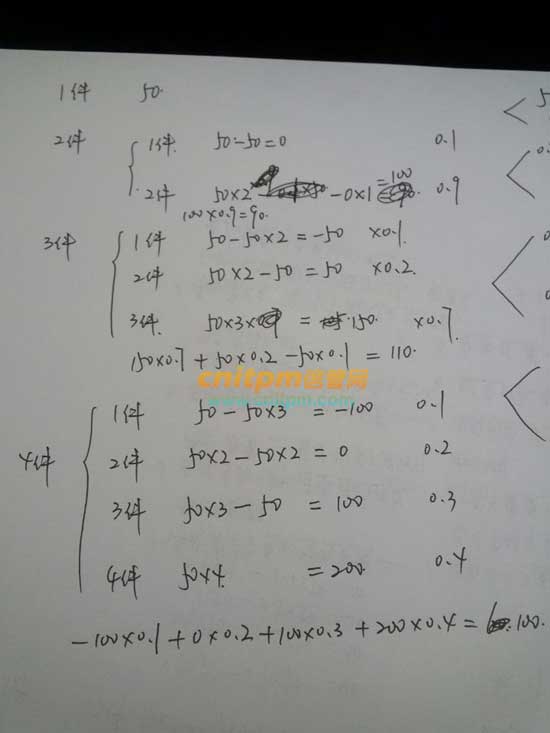 1件 50
2件 1件 50-50=0 0.1
2件 50×2 -0×1 =100 0.9
100×0.9=90.
3件 1件 50-50×2=-50 ×0.1
2件 50×2-50=50 ×0.2
3件 50×3× = 150. ×0.7
150×0.7+50×0.2-50×0.1=110.
cnitpm信管网
www.cnitpm.com
4件 1件 50-50×3=-100 0.1
2件 50×2-50×2=0 0.2
3件 50×3-50=100 0.3
4件 50×4=200 0.4
-100×0.1+0×0.2+100×0.3+200×0.4= 100.